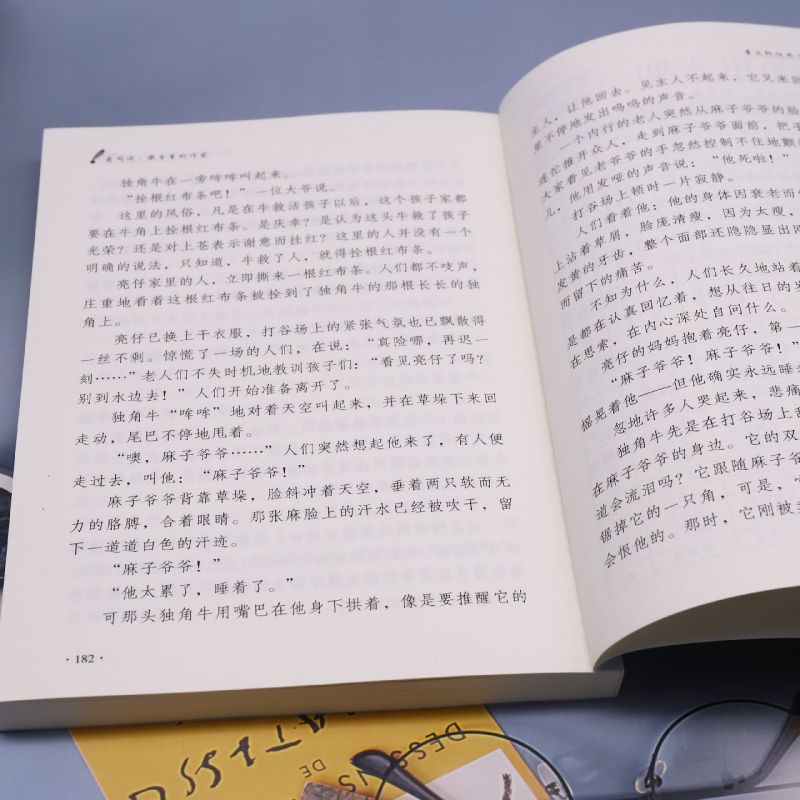 爱阅读·课本里的作家
独角牛在一旁哞哞叫起来。
“拴根红布条吧！”一位大爷说。
这里的风俗，凡是在牛救活孩子以后，这个孩子家都
要在牛角上拴根红布条。是庆幸？是认为这头牛救了孩子
光荣？还是对上苍表示谢意而挂红？这里的人并没有一个
明确的说法，只知道，牛救了人，就得拴根红布条。
亮仔家里的人，立即撕来一根红布条。人们都不吱声，
庄重地看着这根红布条被拴到了独角牛的那根长长的独
角上。
亮仔已换上干衣服，打谷场上的紧张气氛也已飘散得
一丝不剩。惊慌了一场的人们，在说：“真险哪，再迟一
刻……”老人们不失时机地教训孩子们：“看见亮仔了吗？
别到水边去！”人们开始准备离开了。
独角牛“哞哞”地对着天空叫起来，并在草垛下来回
走动，尾巴不停地甩着。
“噢，麻子爷爷……”人们突然想起他来了，有人便
走过去，叫他：“麻子爷爷！”
麻子爷爷背靠草垛，脸斜冲着天空，垂着两只软而无
力的胳膊，合着眼睛。那张麻脸上的汗水已经被吹干，留
下一道道白色的汗迹。
“麻子爷爷！”
“他太累了，睡着了。”
可那头独角牛用嘴巴在他身下拱着，像是要推醒它的
·182·
主人，让他回去。见主人不起来，它又来回
里不停地发出呜呜的声音。
一个内行的老人突然从麻子爷爷的脸
连忙推开众人，走到麻子爷爷面前，把手
大家看见老爷爷的手忽然控制不住地颤
儿，他用发哑的声音说：“他死啦！”
打谷场上顿时一片寂静。
人们看着他：他的身体因衰老而
上沾着草屑，脸庞清瘦，因为太瘦，
发黄的牙齿，整个面部还隐隐显出
而留下的痛苦。
不知为什么，人们长久地站着
是都在认真回忆着，想从往日的
在思索，在内心深处自问什么。
亮仔的妈妈抱着亮仔，第一
“麻子爷爷！麻子爷爷！”
摇晃着他——但他确实永远睡
忽地许多人哭起来，悲痛
独角牛先是在打谷场上
在麻子爷爷的身边。它的双
道会流泪吗？它跟随麻子爷
锯掉它的一只角，可是，它
会恨他的。那时，它刚被
DESSINS
DE